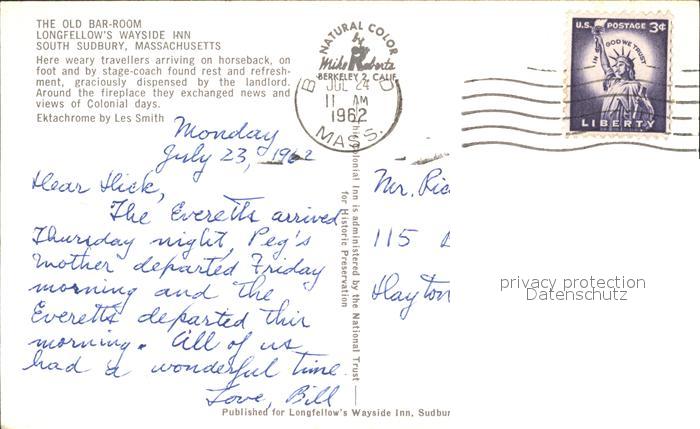 THE OLD BAR-ROOM
LONGFELLOW'S WAYSIDE INN
SOUTH SUDBURY, MASSACHUSETTS
Here weary travellers arriving on horseback, on
foot and by stage-coach found rest and refresh-
ment, graciously dispensed by the landlord.
Around the fireplace they exchanged news and
views of Colonial days.
Ektachrome by Les Smith
NATURAL COLOR
by
Mike Roberts
BERKELEY 2, CALIF.
JUL 24
11 AM
1962
MASS.
U.S. POSTAGE 3¢
IN GOD WE TRUST
LIBERTY
Monday
July 23, 1962
Dear Dick,
The Everetts arrived
Thursday night, Peg's
mother departed Friday
morning and the
Everetts departed this
morning. All of us
had a wonderful time.
Love, Bill
Colonial Inn is administered by the National Trust
for Historic Preservation
Mr. Ric
115
Dayton
privacy protection
Datenschutz
Published for Longfellow's Wayside Inn, Sudbur